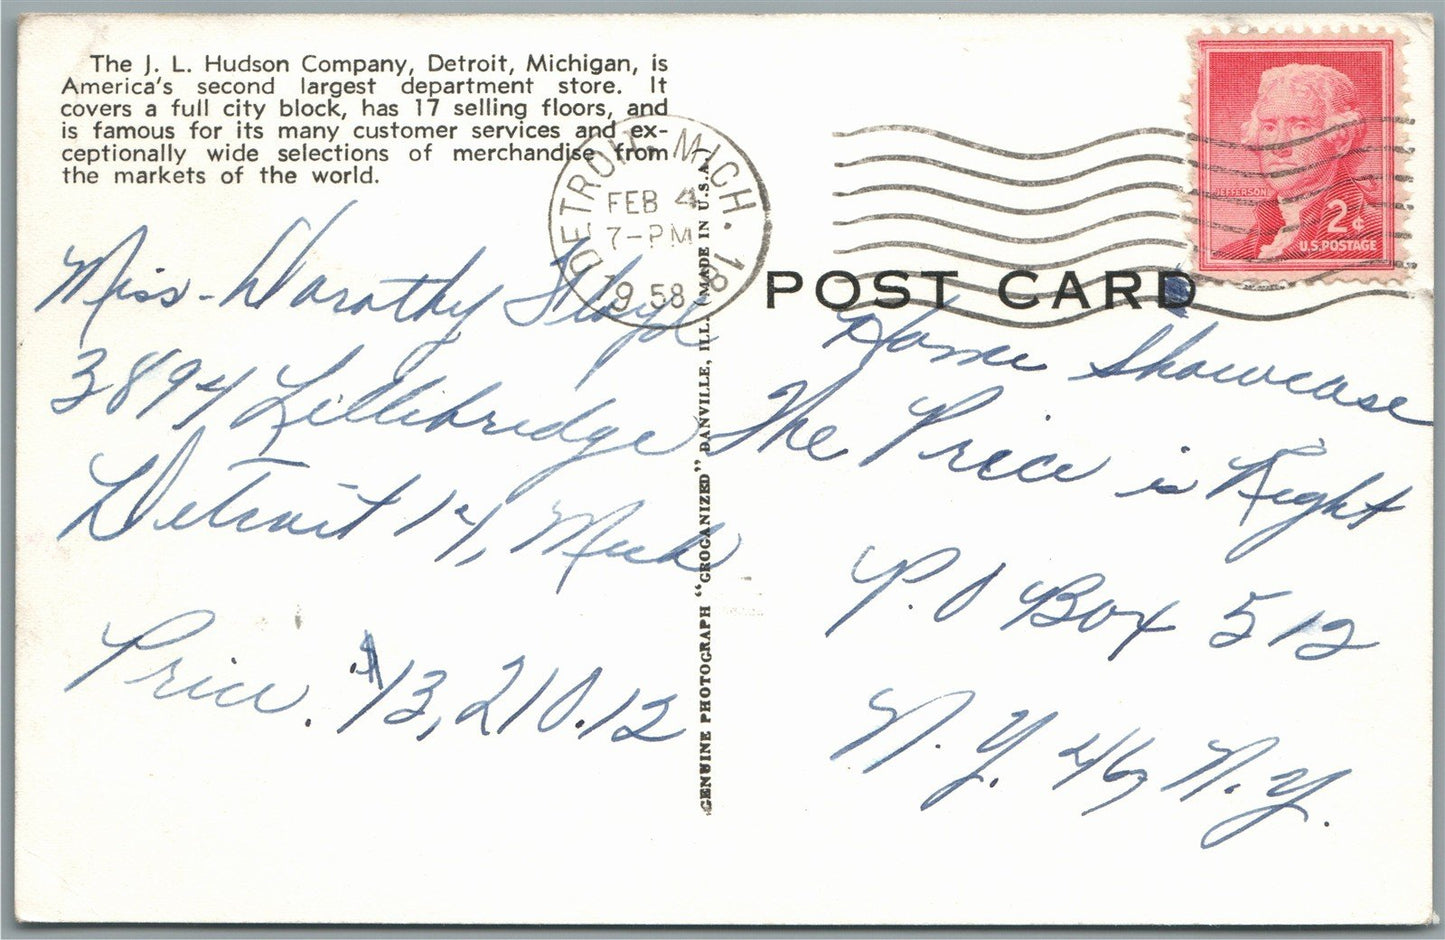 The J. L. Hudson Company, Detroit, Michigan, is
America's second largest department store. It
covers a full city block, has 17 selling floors, and
is famous for its many customer services and ex-
ceptionally wide selections of merchandise from
the markets of the world.
DETROIT, MICH. 18
FEB 4
7-PM
1958
JEFFERSON
2¢
U.S. POSTAGE
POST CARD
GENUINE PHOTOGRAPH "GROGANIZED" DANVILLE, ILL. (MADE IN U.S.A.)
Miss Dorothy Floyd
3894 Lillibridge
Detroit 14, Mich
Price. $13,210.12
Home Showcase
The Price is Right
P.O Box 512
N.Y. 46, N.Y.